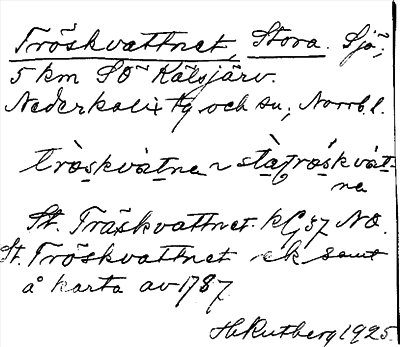 Tröskvattnet, Stora. Sjö;
5 km SO Kälsjärv.
Nederkalix tg och sn; Norrb. l.
tròskvàtnạ ~ stàtröskvàt-
na
St. Träskvattnet kG 57 NO.
St. Tröskvattnet ek samt
å karta av 1787
H Rutberg 1925.